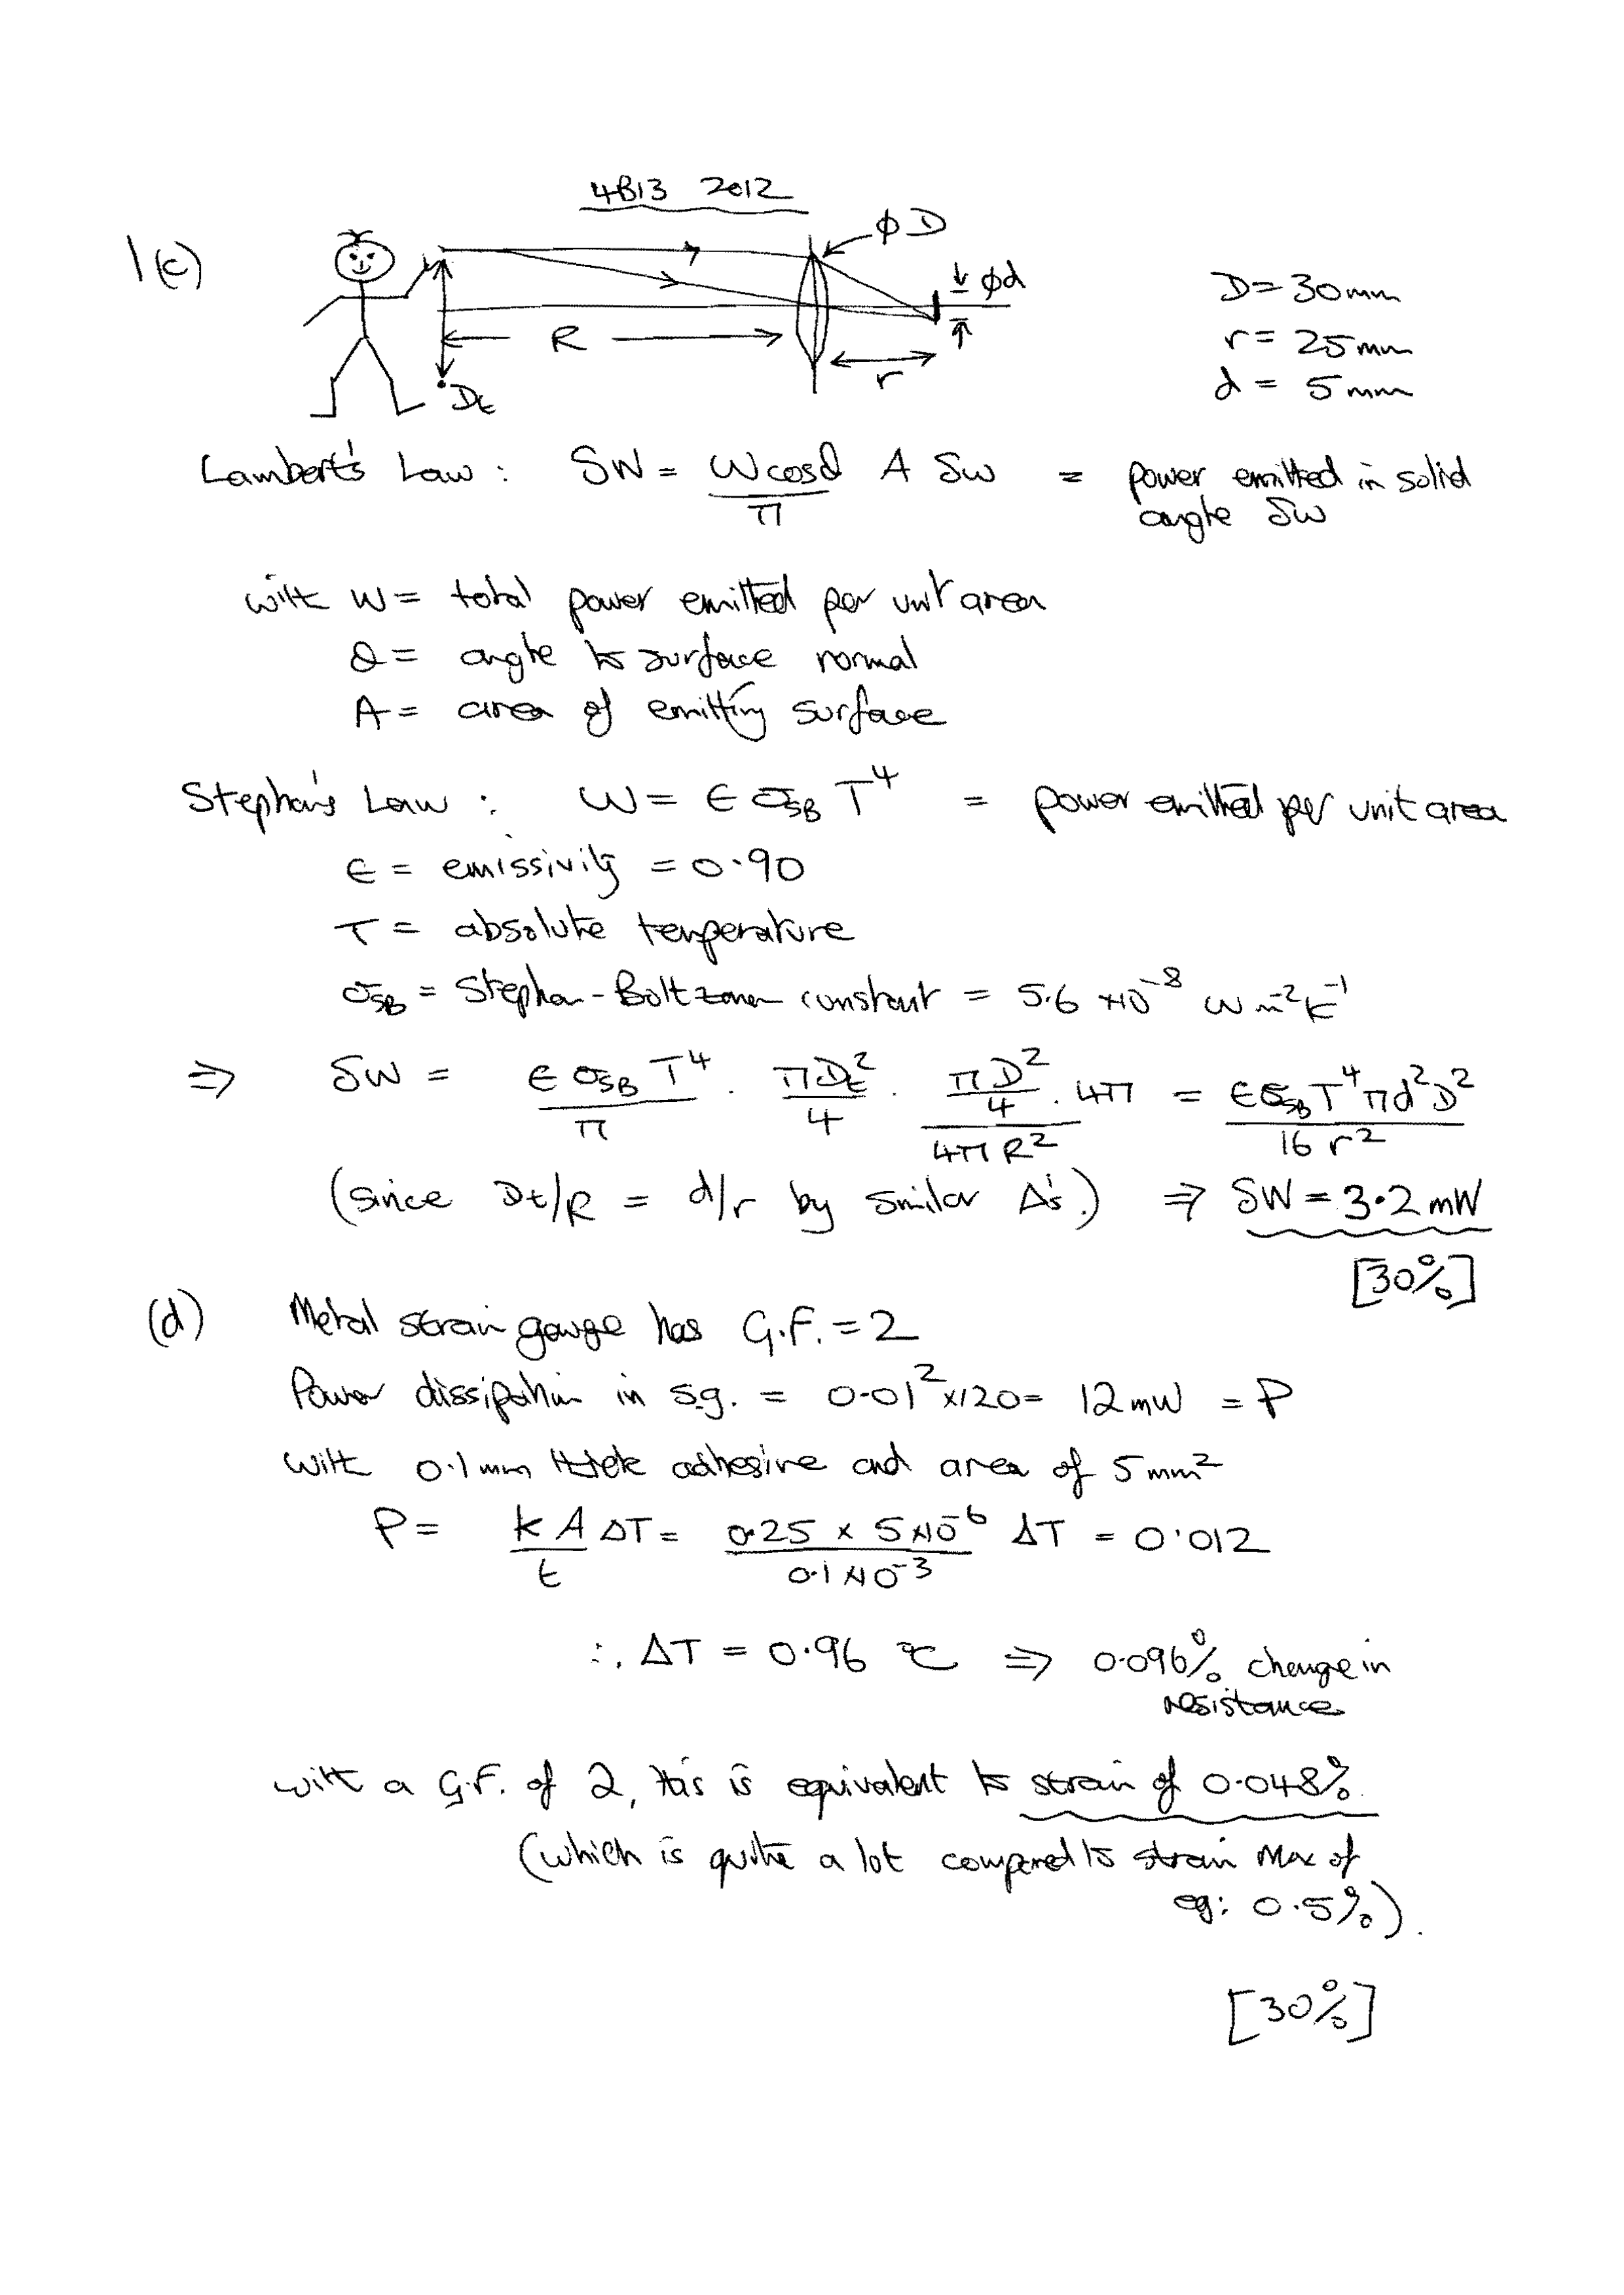 4B13 2012
1(c)
φD
φd
R
r
Dt
D = 30mm
r = 25mm
d = 5mm
Lambert's Law : δW = Wcosθ/π A δω = power emitted in solid
angle δω
with W = total power emitted per unit area
θ = angle to surface normal
A = area of emitting surface
Stephan's Law : W = ϵ σSB T⁴ = power emitted per unit area
ϵ = emissivity = 0.90
T = absolute temperature
σSB = Stephan-Boltzman constant = 5.6 ×10⁻⁸ W m⁻² K⁻¹
⇒ δW = ϵ σSB T⁴/π . πDt²/4 . (πD²/4)/(4πR²) . 4π = ϵσSB T⁴ πd²D²/16 r²
(since Dt/R = d/r by similar Δ's.) ⇒ δW = 3.2 mW
[30%]
(d) Metal strain gauge has G.F. = 2
Power dissipation in s.g. = 0.01² ×120 = 12 mW = P
with 0.1mm thick adhesive and area of 5mm²
P = kA/t ΔT = 0.25 × 5×10⁻⁶/0.1×10⁻³ ΔT = 0.012
∴ ΔT = 0.96 °C ⇒ 0.096% change in
resistance
with a G.F. of 2, this is equivalent to strain of 0.048%.
(which is quite a lot compared to strain max of
eg: 0.5%).
[30%]